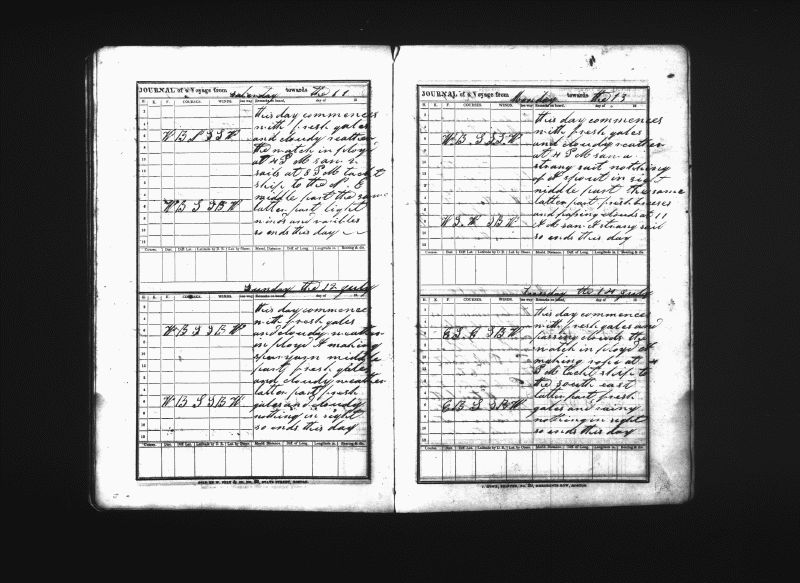 JOURNAL of a Voyage from Saturday towards the 11
H. K. F. COURSES. WINDS. Lee-way Remarks on board, day of 18
this day commences
with fresh gales
W B S S S W and cloudy weather
the watch in ployd
at 4 P M saw
sails at 5 P M tackt
ship to the
middle part the same
W B S S B W latter part light
winds and
so ends this day
Course. Dist. Diff Lat. Latitude by D. R. Lat by Obser. Merid. Distance. Diff of Long. Longitude in. Bearing & dis.
Sunday the 12 july
H. K. F. COURSES. WINDS. Lee-way Remarks on board, day of 18
this day commence
with fresh gales
W B S S B W and cloudy weather
in ployd making
spunyarn middle
part fresh gales
and cloudy weather
latter part fresh
W B S S B W gales and cloudy
nothing in sight
so ends this day
Course. Dist. Diff Lat. Latitude by D. R. Lat by Obser. Merid. Distance. Diff of Long. Longitude in. Bearing & dis.
JOURNAL of a Voyage from Monday towards the 13
H. K. F. COURSES. WINDS. Lee-way Remarks on board, day of 18
this day commences
with fresh gales
W B S S S W and cloudy weather
at 4 P M saw a
strang sail nothing
of spout in sight
middle part the same
latter part fresh breeses
and passing clouds at 11
W S W S B W A M saw A strang sail
so ends this day
Course. Dist. Diff Lat. Latitude by D. R. Lat by Obser. Merid. Distance. Diff of Long. Longitude in. Bearing & dis.
the 14 july
H. K. F. COURSES. WINDS. Lee-way Remarks on board, day of 18
this day commences
with fresh gales and
E S E S B W passing clouds the
watch in ployd at
making rope at 4
P M tackt ship to
the south east
latter part fresh
E B S S B W gales and rainy
nothing in sight
so ends this day
Course. Dist. Diff Lat. Latitude by D. R. Lat by Obser. Merid. Distance. Diff of Long. Longitude in. Bearing & dis.